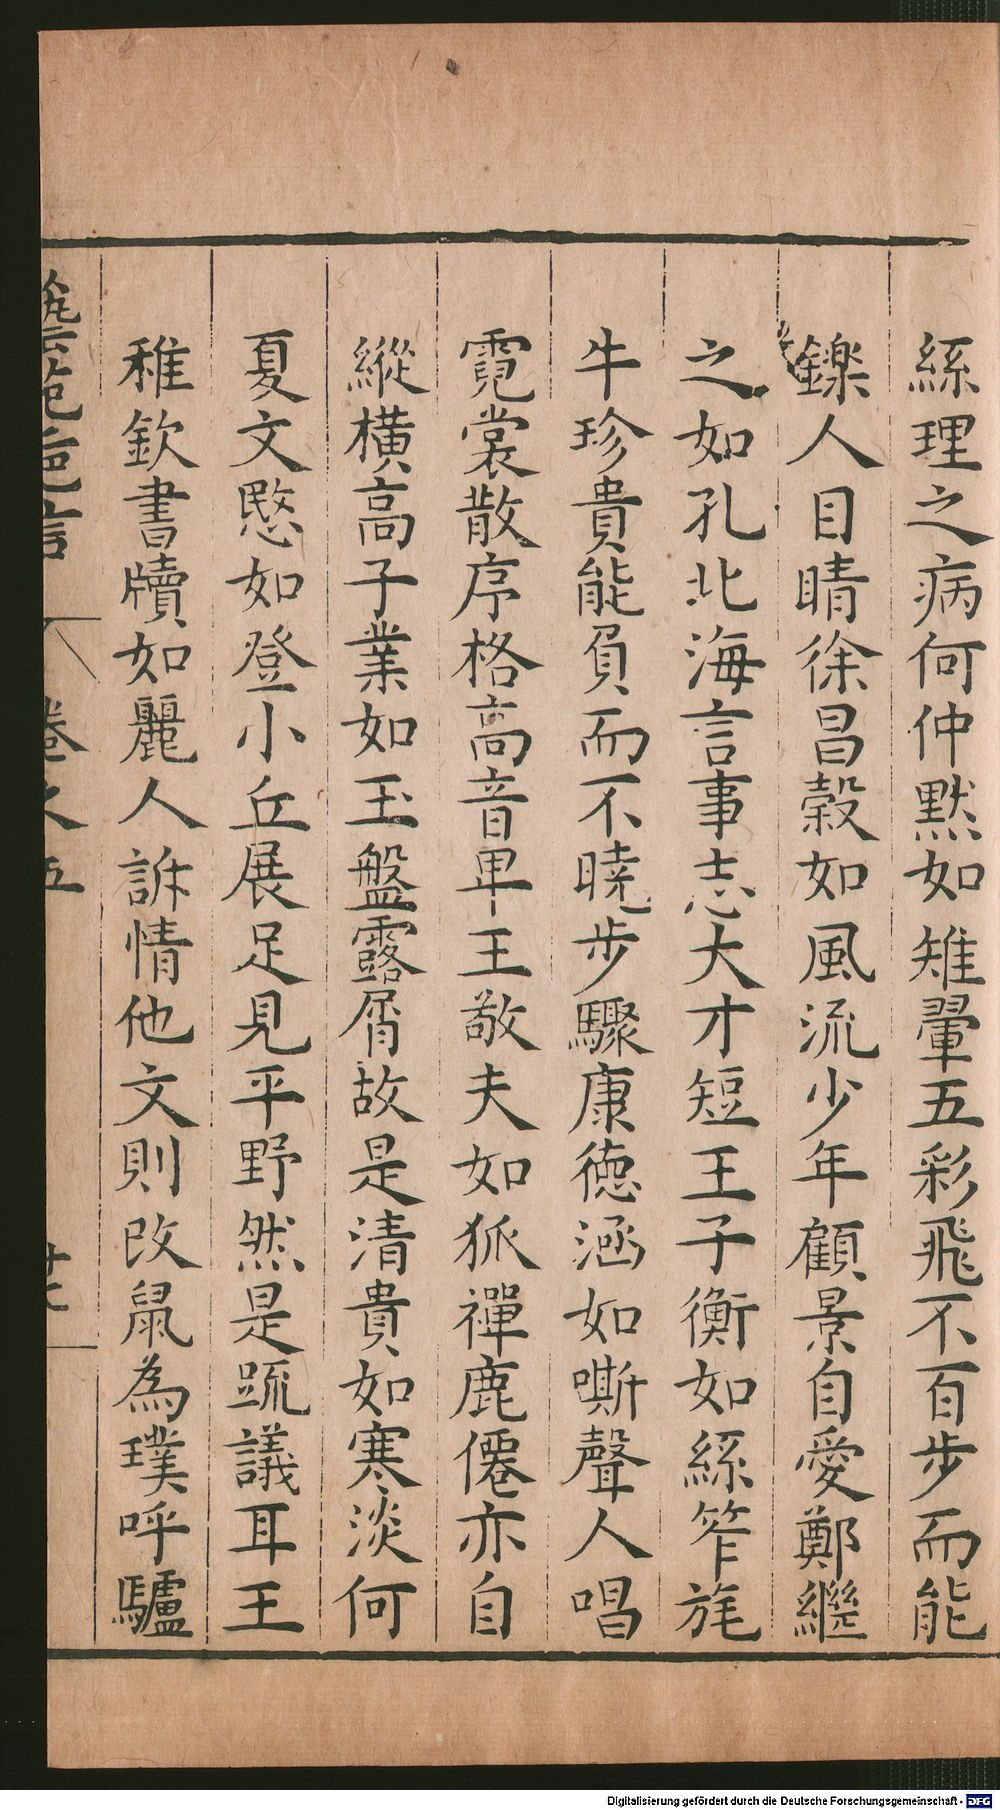 絲理之病何仲默如雉翬五彩飛不百步而能
鑠人目睛徐昌穀如風流少年顧景自愛鄭繼
之如孔北海言事志大才短王子衡如絲笮旄
牛珍貴能負而不曉步驟康德涵如嘶聲人唱
霓裳散序格高音卑王敬夫如狐禪鹿僊亦自
縱橫高子業如玉盤露屑故是清貴如寒淡何
夏文愍如登小丘展足見平野然是疏議耳王
稚欽書牘如麗人訴情他文則改鼠為璞呼驢
藝苑巵言
卷之五
Digitalisierung gefördert durch die Deutsche Forschungsgemeinschaft - DFG